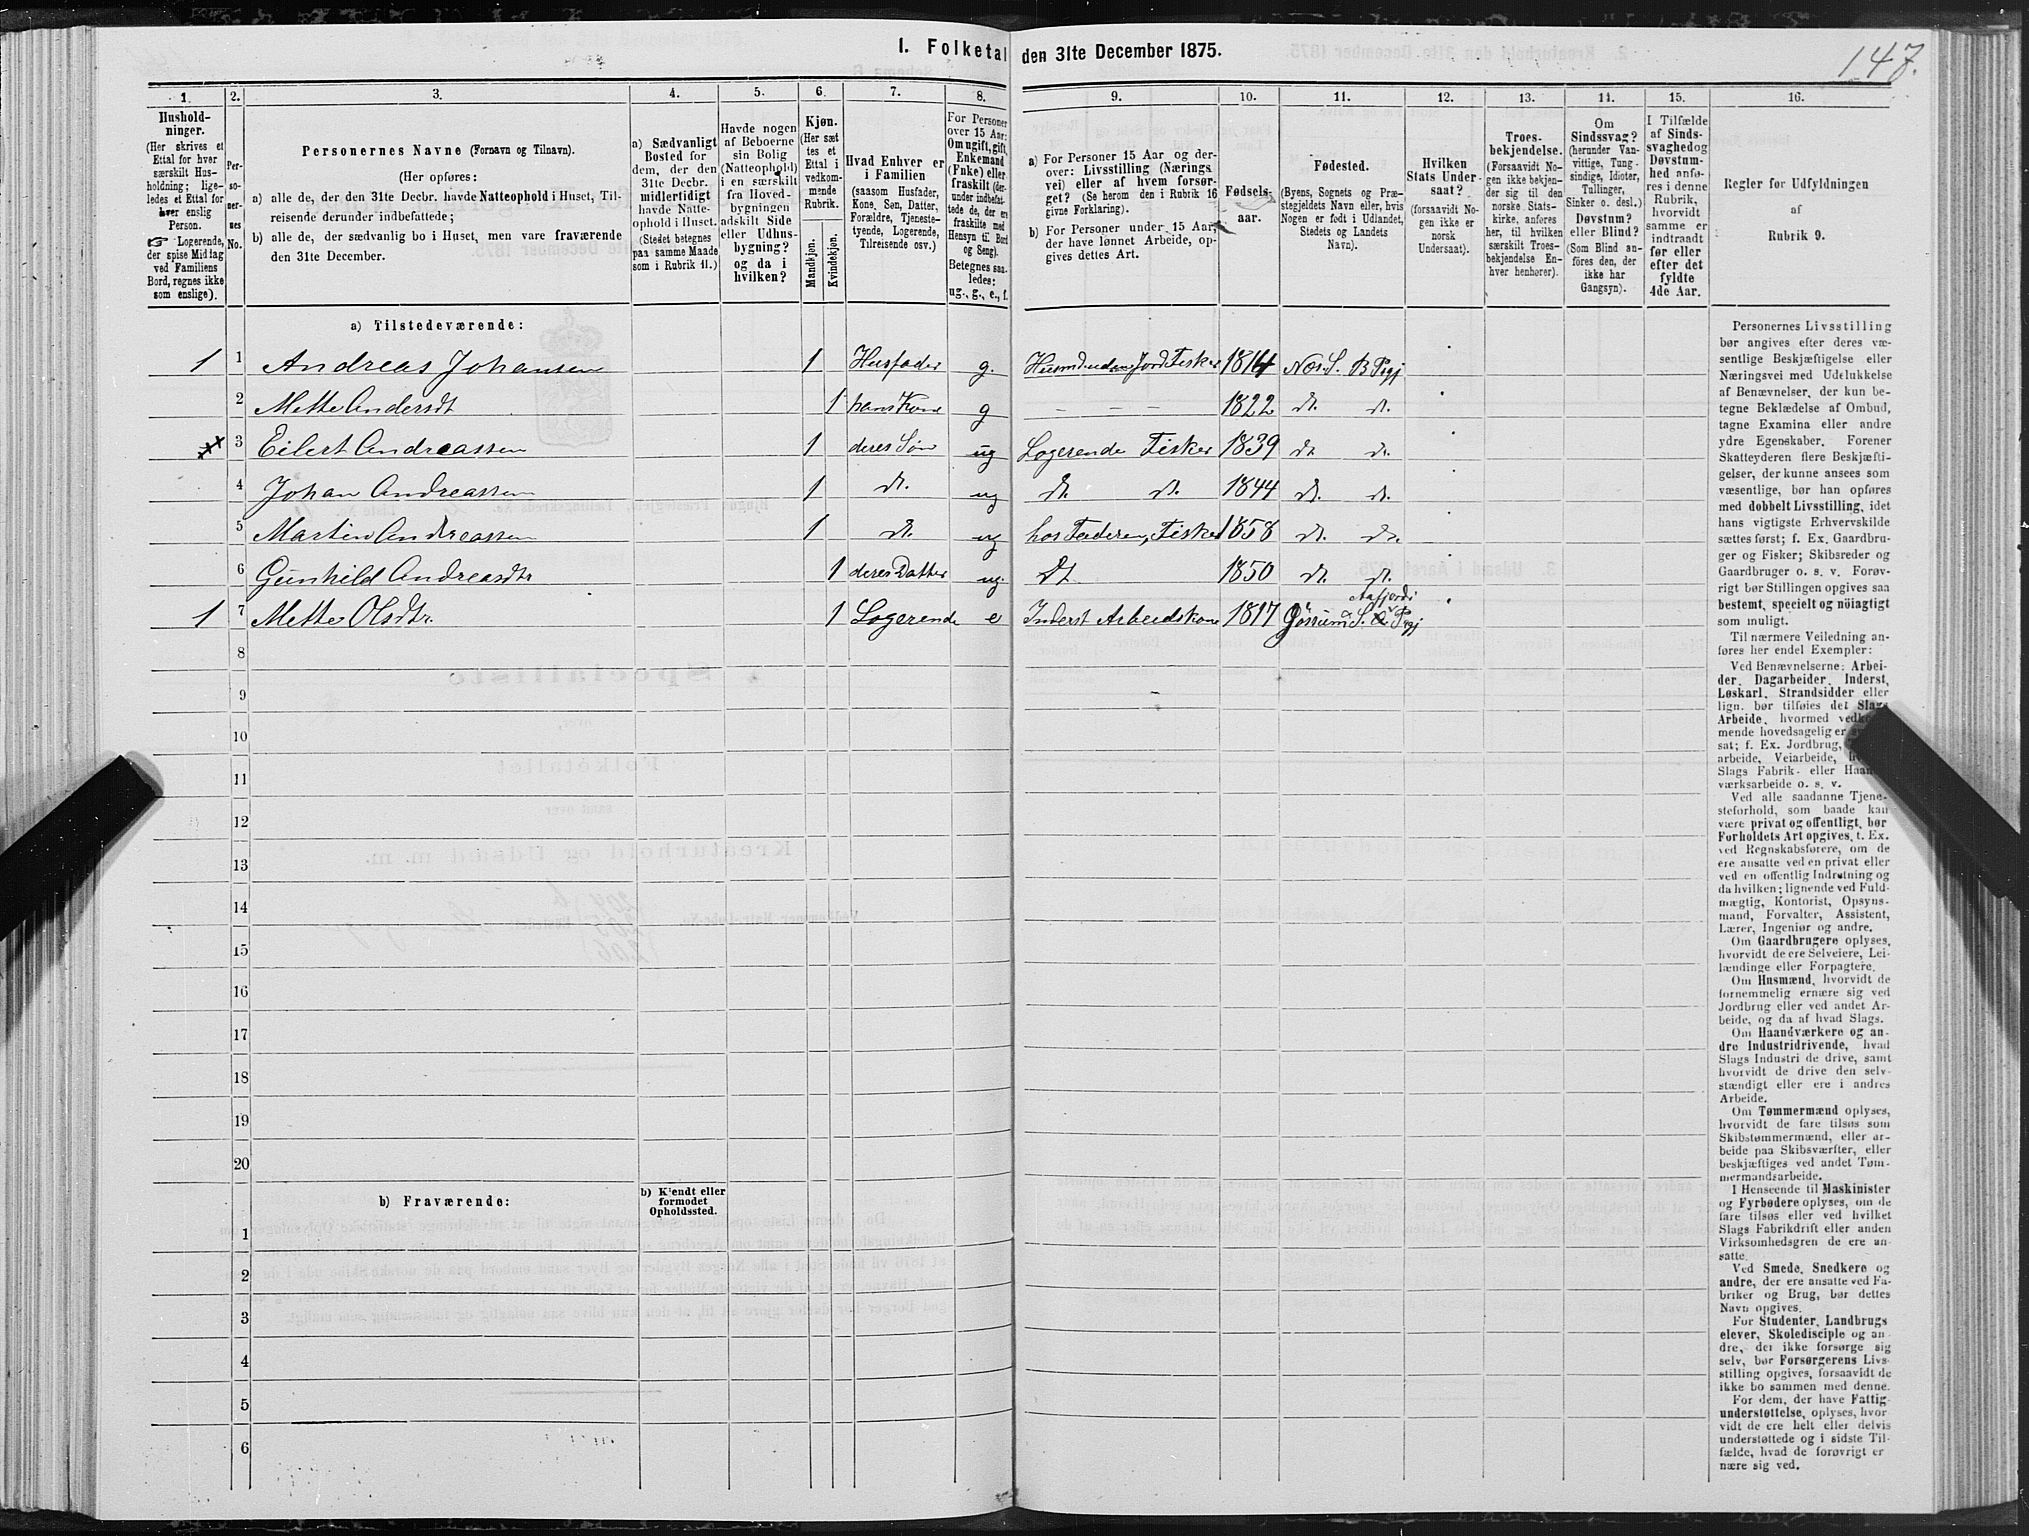 1. Folketal den 31te December 1875.
147.
1. 2. 3. 4. 5. 6. 7. 8. 9. 10. 11. 12. 13. 14. 15. 16.
Hushold-
ninger.
(Her skrives et
Ettal for hver
særskilt Hus-
holdning; lige-
ledes et Ettal for
hver enslig
Person.
☞ Logerende,
der spise Middag
ved Familiens
Bord, regnes ikke
som enslige).
Per-
so-
ner-
nes
No.
Personernes Navne (Fornavn og Tilnavn).
(Her opføres:
a) alle de, der den 31te Decbr. havde Natteophold i Huset, Til-
reisende derunder indbefattede;
b) alle de, der sædvanlig bo i Huset, men vare fraværende
den 31te December.
a) Sædvanligt
Bosted for
dem, der den
31te Decbr.
midlertidigt
havde Natte-
ophold i Huset.
(Stedet betegnes
paa samme Maade
som i Rubrik 11.)
Havde nogen
af Beboerne
sin Bolig
(Natteophold)
i en særskilt
fra Hoved-
bygningen
adskilt Side
eller Udhus-
bygning?
og da i
hvilken?
Kjøn.
(Her sæt
tes et
Ettal i
vedkom-
mende
Rubrik.
Mandkjøn.
Kvindekjøn.
Hvad Enhver er
i Familien
(saasom Husfader,
Kone, Søn, Datter,
Forældre, Tjeneste-
tyende, Logerende,
Tilreisende osv.)
For Personer
over 15 Aar:
Om ugift, gift,
Enkemand
(Enke) eller
fraskilt (der-
under indbefat-
tede de, der ere
fraskilte med
Hensyn til Bord
og Seng).
Betegnes saa-
ledes:
ug., g., e., f.
a) For Personer 15 Aar og der-
over: Livsstilling (Nærings
vei) eller af hvem forsør-
get? (Se herom den i Rubrik 16
givne Forklaring).
b) For Personer under 15 Aar,
der have lønnet Arbeide, op-
gives dettes Art.
Fødsels-
aar.
Fødested.
(Byens, Sognets og Præ-
stegjeldets Navn eller, hvis
Nogen er født i Udlandet,
Stedets og Landets
Navn).
Hvilken
Stats Under-
saat?
(forsaavidt No-
gen ikke er
norsk
Undersaat).
Troes-
bekjendelse.
(Forsaavidt No-
gen ikke bekjen-
der sig til den
norske Stats-
kirke, anføres
her, til hvilken
særskilt Troes-
bekjendelse En-
hver henhører).
Om
Sindssvag?
(herunder Van-
vittige, Tung-
sindige, Idioter,
Tullinger,
Sinker o. desl.)
Døvstum?
eller Blind?
(Som Blind an-
føres den, der
ikke har
Gangsyn).
I Tilfælde
af Sinds-
svaghedog
Døvstum-
hed anfø-
res i denne
Rubrik,
hvorvidt
samme er
indtraadt
før eller
efter det
fyldte
4de Aar.
Regler før Udfyldningen
af
Rubrik 9.
a) Tilstedeværende:
1 1 Andreas Johansen 1 Husfader g. 1814 Næs S. B Pgj
2 Mette Andersdt 1 hans Kone g — — — 1822 dt. dt.
3 Eilert Andreassen 1 deres Søn ug Logerende Fisker 1839 dt dt.
4 Johan Andreassen 1 dt. ug dt. dt. 1844 dt. dt.
5 Martin Andreassen 1 dt. ug hos Faderen, Fisker 1858 dt. dt.
6 Gunhild Andreasdtr 1 deres Datter ug. dt 1850 dt. dt.
Aafjords
1 7 Mette Olsdtr. 1 Logerende e Inderst Arbeidskone 1817 S. Pgj
8
9
10
11
12
13
14
15
16
17
18
19
20
b) Fraværende:
b) Kjendt eller
formodet
Opholdssted.
1
2
3
4
5
6
Personernes Livsstilling
bør angives efter deres væ-
sentlige Beskjæftigelse eller
Næringsvei med Udelukkelse
af Benævnelser, der kun be-
tegne Beklædelse af Ombud,
tagne Examina eller andre
ydre Egenskaber. Forener
Skatteyderen flere Beskjæfti-
gelser, der kunne ansees som
væsentlige, bør han opføres
med dobbelt Livsstilling, idet
hans vigtigste Erhvervskilde
sættes først; f. Ex. Gaardbru-
ger og Fisker; Skibsreder og
Gaardbruger o. s. v. Forøv-
rigt bør Stillingen opgives saa
bestemt, specielt og nøiagtigt
som muligt.
Til nærmere Veiledning an-
føres her endel Exempler:
Ved Benævnelserne: Arbei-
der, Dagarbeider, Inderst,
Løskarl, Strandsidder eller
lign. bør tilføies det Slags
Arbeide, hvormed
mende hovedsagelig er
sat; f. Ex. Jordbrug,
arbeide, Veiarbeide,
Slags Fabrik- eller
værksarbeide o. s. v.
Ved alle saadanne Tjene-
steforhold, som baade kan
være privat og offentligt, bør
Forholdets Art opgives, t. Ex.
ved Regnskabsførere, om de
ere ansatte ved en privat eller
ved en offentlig Indretning og
da hvilken; lignende ved Fuld-
mægtig, Kontorist, Opsyns-
mand, Forvalter, Assistent,
Lærer, Ingeniør og andre.
Om Gaardbrugere oplyses,
hvorvidt de ere Selveiere, Lei-
lændinge eller Forpagtere.
Om Husmænd, hvorvidt de
fornemmelig ernære sig ved
Jordbrug eller ved andet Ar-
beide, og da af hvad Slags.
Om Haandværkere og an-
dre Industridrivende, hvad
Slags Industri de drive, samt
hvorvidt de drive den selv-
stændigt eller ere i andres
Arbeide.
Om Tømmermænd oplyses,
hvorvidt de fare tilsøs som
Skibstømmermænd, eller ar-
beide paa Skibsværfter, eller
beskjæftiges ved andet Tøm-
mermandsarbeide.
I Henseende til Maskinister
og Fyrbødere oplyses, om de
fare tilsøs eller ved hvilket
Slags Fabrikdrift eller anden
Virksomhedsgren de ere an-
satte.
Ved Smede, Snedkere og
andre, der ere ansatte ved Fa-
briker og Brug, bør dettes
Navn opgives.
For Studenter, Landbrugs
elever, Skoledisciple og an-
dre, der ikke forsørge sig
selv, bør Forsørgerens Livs-
stilling opgives, forsaavidt de
ikke bo sammen med denne.
For dem, der have Fattig-
understøttelse, oplyses, hvor-
vidt de ere helt eller delvis
understøttede og i sidste Til-
fælde, hvad de forøvrigt er
nære sig ved.